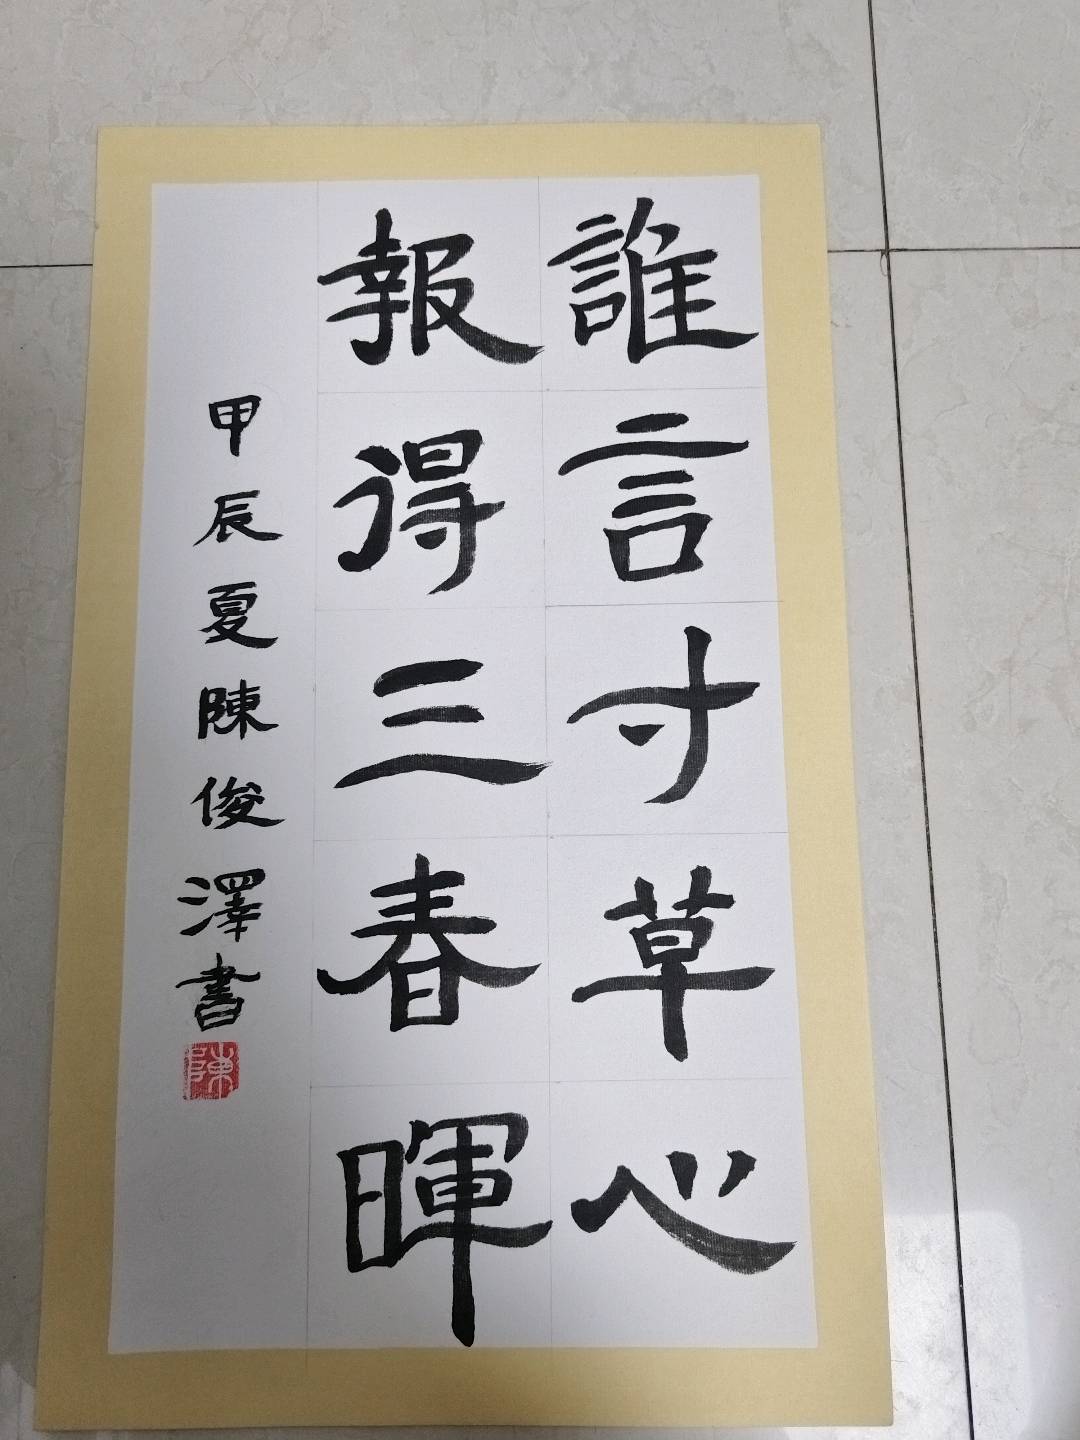 誰言寸草心
報得三春暉
甲辰夏陳俊澤書
陳